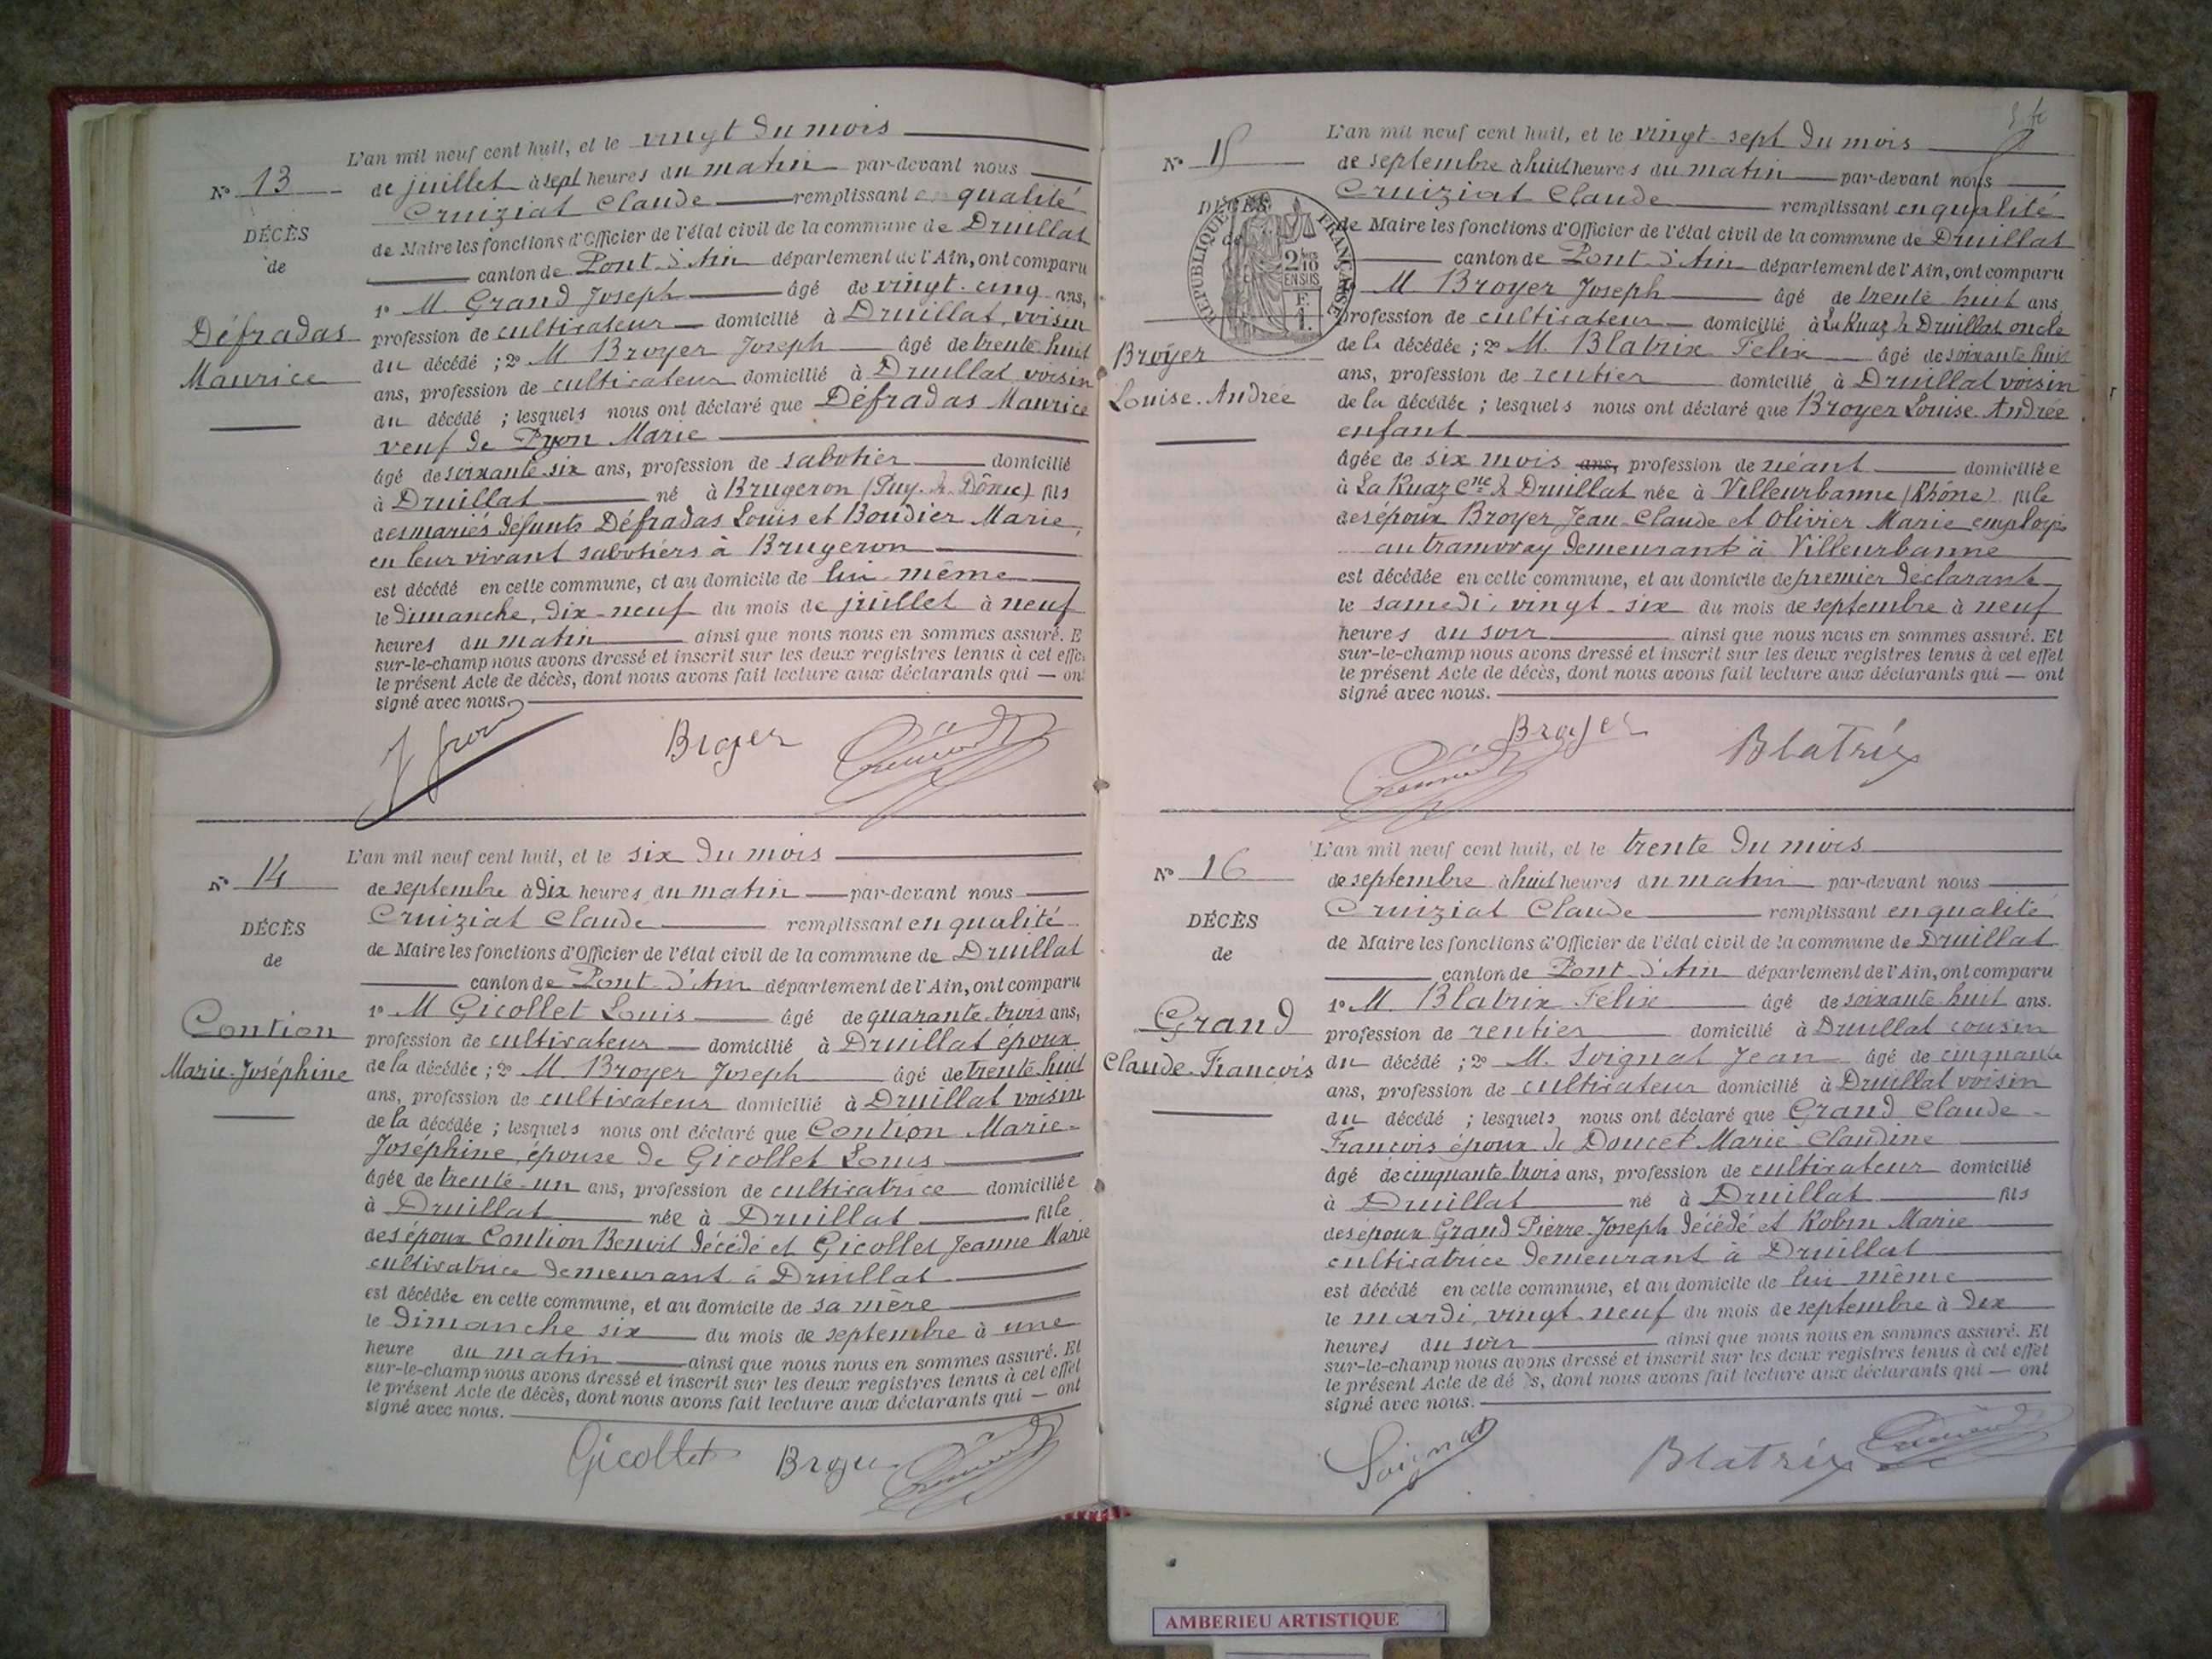 L'an mil neuf cent huit, et le vingt du mois
N° 13
de juillet à sept heures du matin par-devant nous
Cruiziat Claude remplissant en qualité
DÉCÈS
de Maire les fonctions d'Officier de l'état civil de la commune de Druillat
de
canton de Pont-d'Ain département de l'Ain, ont comparu
1° M. Grand Joseph âgé de vingt-cinq ans,
Défradas
profession de cultivateur domicilié à Druillat, voisin
du décédé ; 2° M Broyer Joseph âgé de trente huit
Maurice
ans, profession de cultivateur domicilié à Druillat voisin
du décédé ; lesquels nous ont déclaré que Défradas Maurice
veuf de Pyon Marie
âgé de soixante six ans, profession de sabotier domicilié
à Druillat né à Brugeron (Puy-de-Dôme) fils
des mariés défunts Défradas Louis et Boudier Marie,
en leur vivant sabotiers à Brugeron
est décédé en cette commune, et au domicile de lui-même
le dimanche, dix-neuf du mois de juillet à neuf
heures du matin ainsi que nous nous en sommes assuré. E
sur-le-champ nous avons dressé et inscrit sur les deux registres tenus à cet effe
le présent Acte de décès, dont nous avons fait lecture aux déclarants qui — ont
signé avec nous.
Broyer
L'an mil neuf cent huit, et le six du mois
N° 14
de septembre à dix heures du matin par-devant nous
Cruiziat Claude remplissant en qualité
DÉCÈS
de Maire les fonctions d'Officier de l'état civil de la commune de Druillat
de
canton de Pont-d'Ain département de l'Ain, ont comparu
1° M Gicollet Louis âgé de quarante-trois ans,
Contion
profession de cultivateur domicilié à Druillat époux
Marie-Joséphine
de la décédée ; 2° M Broyer Joseph âgé de trente huit
ans, profession de cultivateur domicilié à Druillat voisin
de la décédée ; lesquels nous ont déclaré que Contion Marie-
Joséphine, épouse de Gicollet Louis
âgée de trente-un ans, profession de cultivatrice domiciliée
à Druillat née à Druillat fille
des époux Contion Benoit décédé et Gicollet Jeanne Marie
cultivatrice demeurant à Druillat
est décédée en cette commune, et au domicile de sa mère
le dimanche six du mois de septembre à une
heure du matin ainsi que nous nous en sommes assuré. Et
sur-le-champ nous avons dressé et inscrit sur les deux registres tenus à cet effet
le présent Acte de décès, dont nous avons fait lecture aux déclarants qui — ont
signé avec nous.
Gicollet Broyer
L'an mil neuf cent huit, et le vingt-sept du mois
N° 15
de septembre à huit heures du matin par-devant nous
Cruiziat Claude remplissant en qualité
DÉCÈS
de
RÉPUBLIQUE FRANÇAISE
2/10 EN SUS
de Maire les fonctions d'Officier de l'état civil de la commune de Druillat
canton de Pont-d'Ain département de l'Ain, ont comparu
M. Broyer Joseph âgé de trente-huit ans
profession de cultivateur domicilié à La Ruaz de Druillat oncle
Broyer
de la décédée ; 2° M. Blatrix Félix âgé de soixante huit
ans, profession de rentier domicilié à Druillat voisin
Louise-Andrée
de la décédée ; lesquels nous ont déclaré que Broyer Louise-Andrée
enfant
âgée de six mois ans, profession de néant domiciliée
à La Ruaz Cne de Druillat née à Villeurbanne (Rhône) fille
des époux Broyer Jean-Claude et Olivier Marie employés
au tramway demeurant à Villeurbanne
est décédée en cette commune, et au domicile de premier déclarant
le samedi, vingt-six du mois de septembre à neuf
heures du soir ainsi que nous nous en sommes assuré. Et
sur-le-champ nous avons dressé et inscrit sur les deux registres tenus à cet effet
le présent Acte de décès, dont nous avons fait lecture aux déclarants qui — ont
signé avec nous.
Broyer Blatrix
L'an mil neuf cent huit, et le trente du mois
N° 16
de septembre à huit heures du matin par-devant nous
Cruiziat Claude remplissant en qualité
DÉCÈS
de Maire les fonctions d'Officier de l'état civil de la commune de Druillat
de
canton de Pont-d'Ain département de l'Ain, ont comparu
1° M. Blatrix Félix âgé de soixante huit ans.
Grand
profession de rentier domicilié à Druillat cousin
Claude-François
du décédé ; 2° M. Soignat Jean âgé de cinquante
ans, profession de cultivateur domicilié à Druillat voisin
du décédé ; lesquels nous ont déclaré que Grand Claude-
François époux de Doucet Marie-Claudine
âgé de cinquante-trois ans, profession de cultivateur domicilié
à Druillat né à Druillat fils
des époux Grand Pierre-Joseph décédé et Robin Marie
cultivatrice demeurant à Druillat
est décédé en cette commune, et au domicile de lui-même
le mardi, vingt-neuf du mois de septembre à dix
heures du soir ainsi que nous nous en sommes assuré. Et
sur-le-champ nous avons dressé et inscrit sur les deux registres tenus à cet effet
le présent Acte de dé s, dont nous avons fait lecture aux déclarants qui — ont
signé avec nous.
Soignat Blatrix
AMBERIEU ARTISTIQUE